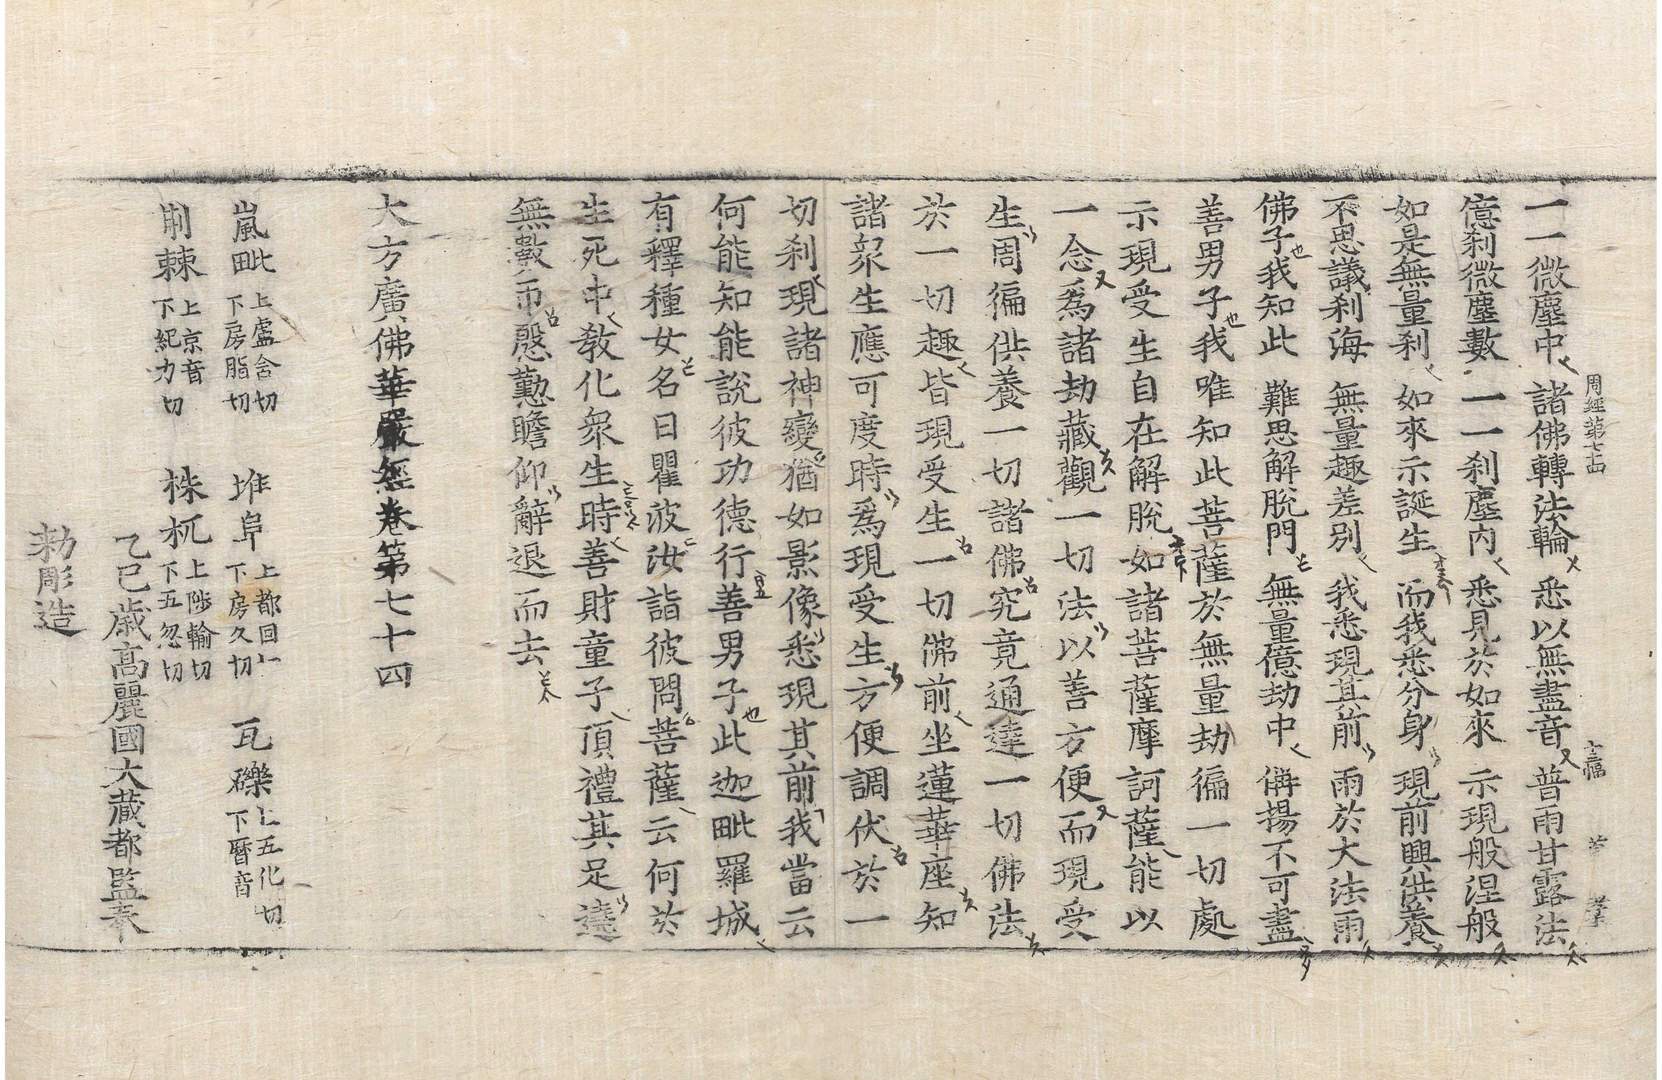 周經第七十四
一一微塵中 諸佛轉法輪 悉以無盡音 普雨甘露法
億刹微塵數 一一刹塵內 悉見於如來 示現般涅般
如是無量刹 如來示誕生 而我悉分身 現前興供養
不思議刹海 無量趣差別 我悉現其前 雨於大法雨
佛子我知此 難思解脫門 無量億劫中 儞揚不可盡
善男子我唯知此菩薩於無量劫徧一切處
示現受生自在解脫如諸菩薩摩訶薩能以
一念爲諸劫藏觀一切法以善方便而現受
生周徧供養一切諸佛究竟通達一切佛法
於一切趣皆現受生一切佛前坐蓮華座知
諸衆生應可度時爲現受生方便調伏於一
切刹現諸神變猶如影像悉現其前我當云
何能知能說彼功德行善男子此迦毗羅城
有釋種女名曰瞿波汝詣彼問菩薩云何於
生死中教化衆生時善財童子頂禮其足遶
無數帀慇懃瞻仰辭退而去
大方廣佛華嚴經卷第七十四
嵐毗 上盧含切 下房脂切 堆阜 上都回切 下房久切 瓦礫 上五化切 下曆音
荆棘 上京音 下紀力切 株杌 上陟輸切 下五忽切
乙巳歲高麗國大藏都監奉
勅彫造